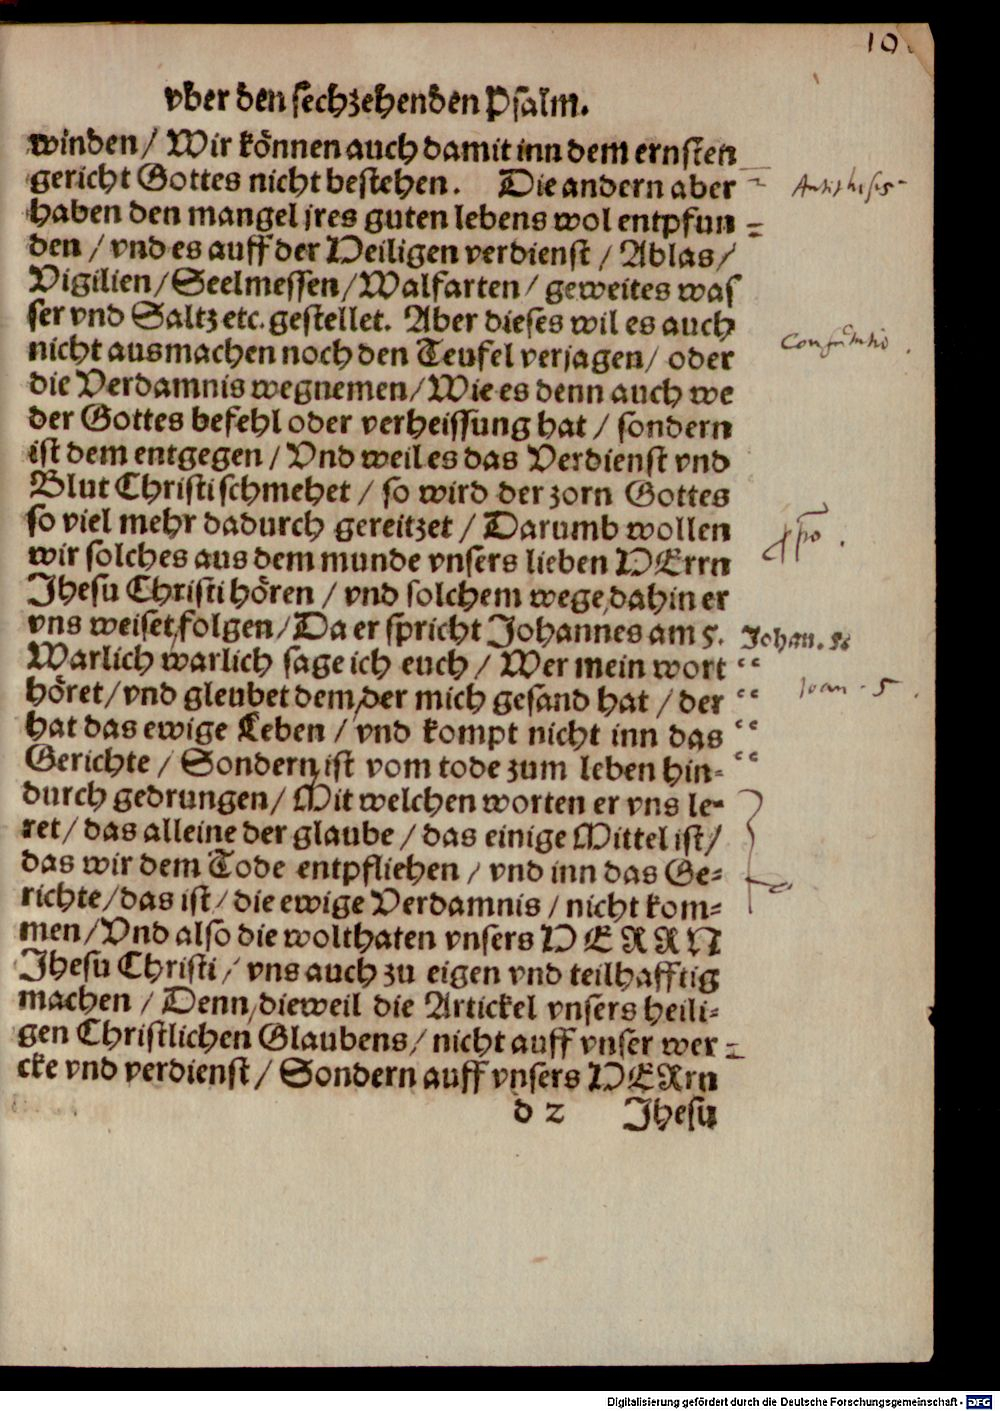 10
vber den sechzehenden Psalm.
winden / Wir können auch damit inn dem ernsten
gericht Gottes nicht bestehen. Die andern aber
Antithesis
haben den mangel jres guten lebens wol entpfun
den / vnd es auff der Heiligen verdienst / Ablas /
Vigilien / Seelmessen / Walfarten / geweites was
ser vnd Saltz etc. gestellet. Aber dieses wil es auch
nicht ausmachen noch den Teufel verjagen / oder
die Verdamnis wegnemen / Wie es denn auch we
der Gottes befehl oder verheissung hat / sondern
ist dem entgegen / Vnd weil es das Verdienst vnd
Blut Christi schmehet / so wird der zorn Gottes
so viel mehr dadurch gereitzet / Darumb wollen
wir solches aus dem munde vnsers lieben HErrn
Jhesu Christi hören / vnd solchem wege, dahin er
vns weiset, folgen / Da er spricht Johannes am 5.
Johan. 5.
Warlich warlich sage ich euch / Wer mein wort
höret / vnd gleubet dem, der mich gesand hat / der
Joan. 5.
hat das ewige Leben / vnd kompt nicht inn das
Gerichte / Sondern ist vom tode zum leben hin=
durch gedrungen / Mit welchen worten er vns le=
ret / das alleine der glaube / das einige Mittel ist /
das wir dem Tode entpfliehen / vnd inn das Ge=
richte / das ist / die ewige Verdamnis / nicht kom=
men / Vnd also die wolthaten vnsers HERRN
Jhesu Christi / vns auch zu eigen vnd teilhafftig
machen / Denn, dieweil die Artickel vnsers heili=
gen Christlichen Glaubens / nicht auff vnser wer=
cke vnd verdienst / Sondern auff vnsers HERrn
d 2 Jhesu
Digitalisierung gefördert durch die Deutsche Forschungsgemeinschaft - DFG